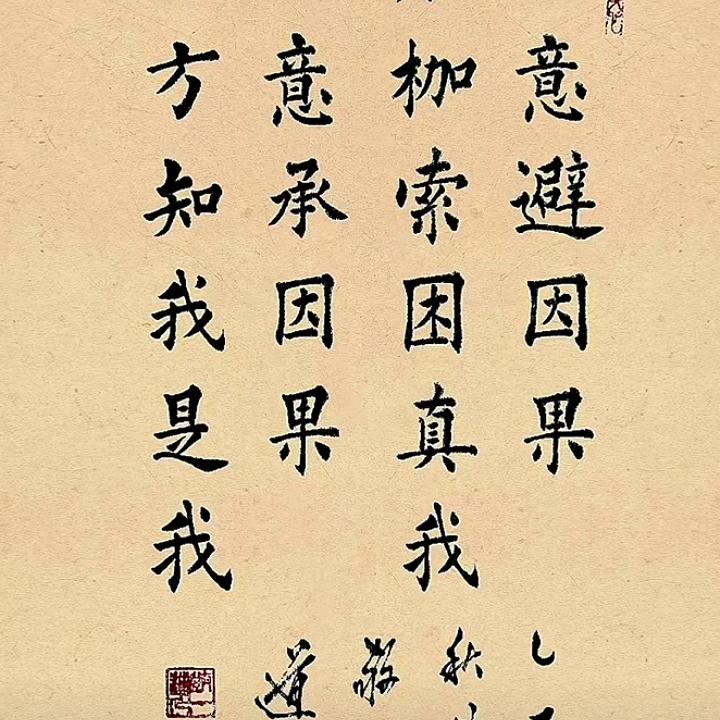 意避因果
枷索困真我
意承因果
方知我是我
乙
秋
敬
道